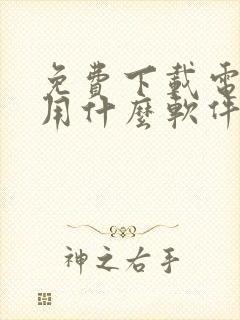 免費下載電
用什麼軟件
神之右手